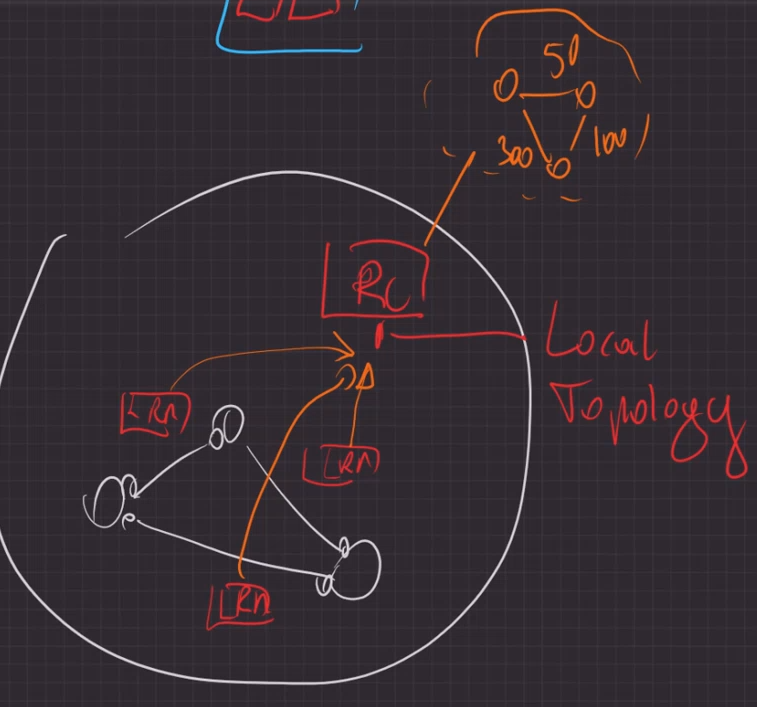 50
300
100
RC
Local
Topology
LRM
LRM
LRM